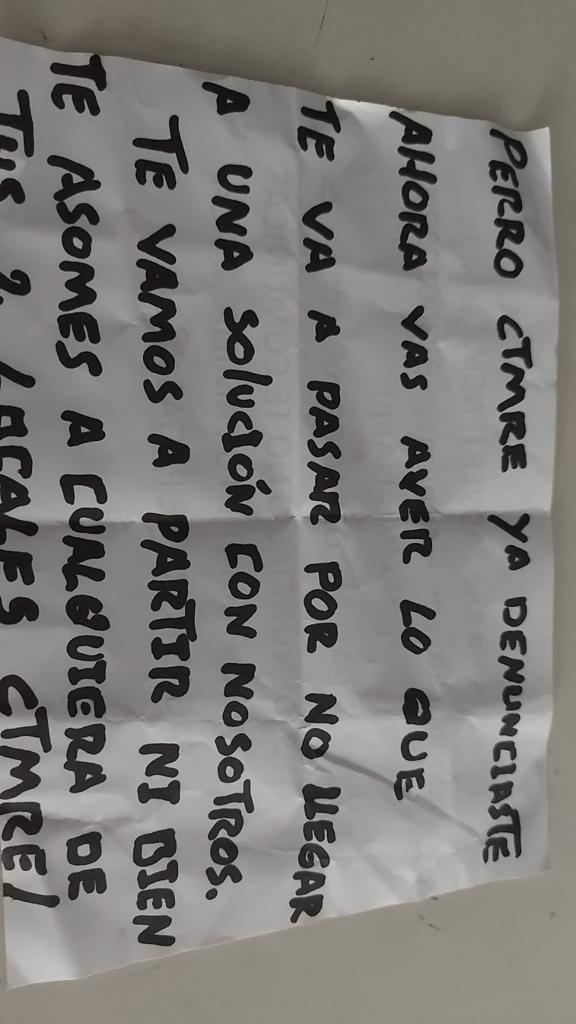 PERRO CTMRE YA DENUNCIASTE
AHORA VAS AVER LO QUE
TE VA A PASAR POR NO LLEGAR
A UNA SOLUCIÓN CON NOSOTROS.
TE VAMOS A PARTIR NI BIEN
TE ASOMES A CUALQUIERA DE
TUS 2 LOCALES CTMRE!